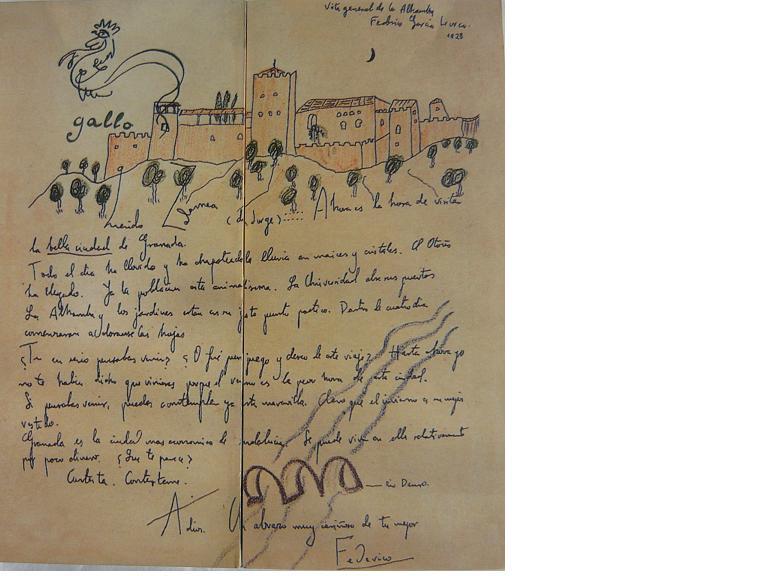 Vista general de la Alhambra
Federico García Lorca.
1928
gallo
Querido Zornea (D. Jorge) Ahora es la hora de visita
la bella ciudad de Granada.
Todo el dia ha llovido y ha chapoteado la lluvia en maices y cristales. El Otoño
ha llegado. Ya la poblacion está animadisima. La Universidad abre sus puertas
La Alhambra y los jardines estan en su justo punto poetico. Dentro de cuatro dias
comenzaran a dorarse las hojas
¿Tu en serio pensabas venir? ¿O fué por juego y deseo de este viaje? Hasta ahora yo
no te habia dicho que vinieras porque el verano es la peor hora de esta ciudad.
Si pensabas venir, puedes contemplar ya esta maravilla. Claro que el invierno es su mejor
vestido.
Granada es la ciudad mas economica de Andalucia. Se puede vivir en ella relativamente
por poco dinero. ¿Que te parece?
Contesta. Contestame.
rio Dauro.
Adios. Un abrazo muy cariñoso de tu mejor
Federico